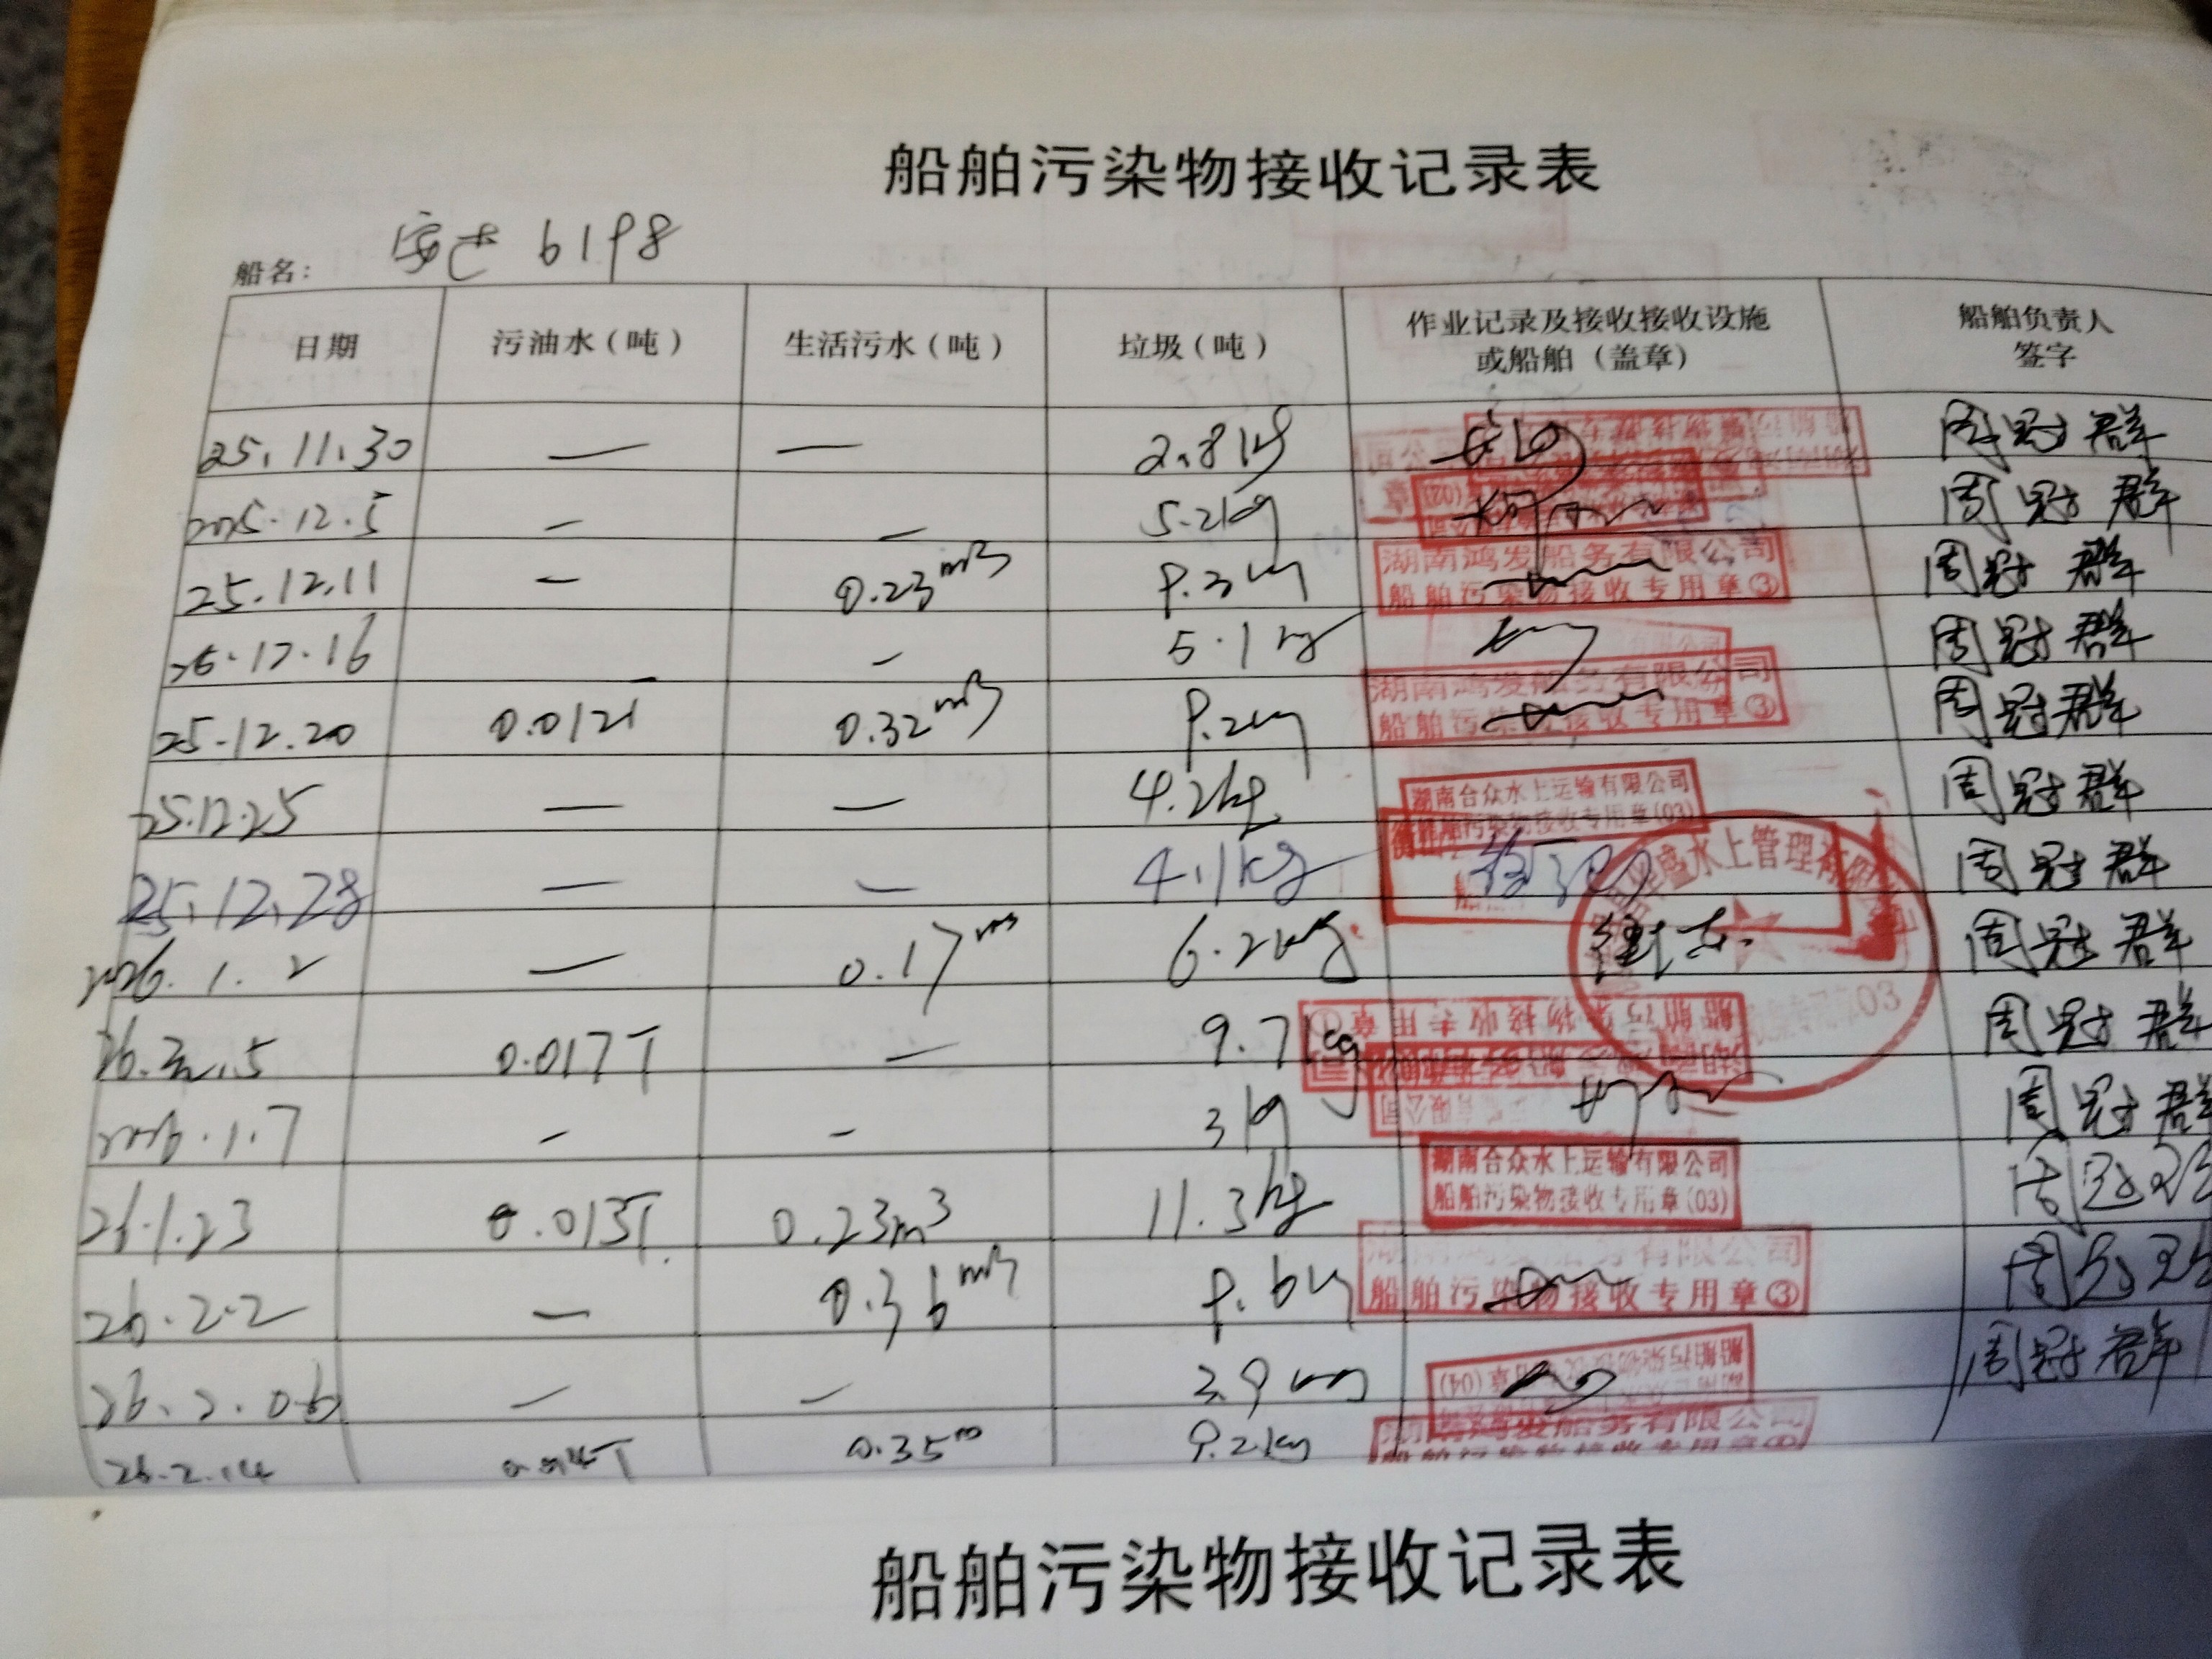 船舶污染物接收记录表
船名: 安达 6198
日期 污油水(吨) 生活污水(吨) 垃圾(吨) 作业记录及接收接收设施或船舶(盖章) 船舶负责人签字
25.11.30 — — 2.8kg 周冠群
2025.12.5 — — 5.2kg 周冠群
25.12.11 — 0.23m3 9.3kg 湖南鸿发船务有限公司 船舶污染物接收专用章③ 周冠群
25.12.16 — 5.1kg 周冠群
25.12.20 0.012T 0.32m3 9.2kg 湖南鸿发船务有限公司 船舶污染物接收专用章③ 周冠群
25.12.25 — — 4.2kg 湖南合众水上运输有限公司 船舶污染物接收专用章(03) 周冠群
25.12.28 — — 4.1kg 水上管理有限 周冠群
2026.1.2 — 0.17m3 6.2kg 03 周冠群
26. .5 0.017T — 9.7kg 船舶污染物接收专用章① 周冠群
2026.1.7 — — 3kg 周冠群
26.1.23 0.013T. 0.23m3 11.3kg 湖南合众水上运输有限公司 船舶污染物接收专用章(03) 周冠
26.2.2 — 0.36m3 9.6kg 湖南鸿发船务有限公司 船舶污染物接收专用章③ 周
26.2.06 — — 3.9kg (04) 周冠群
26.2.14 0.014T 0.35m 9.2kg 湖南鸿发船务有限公司
船舶污染物接收记录表